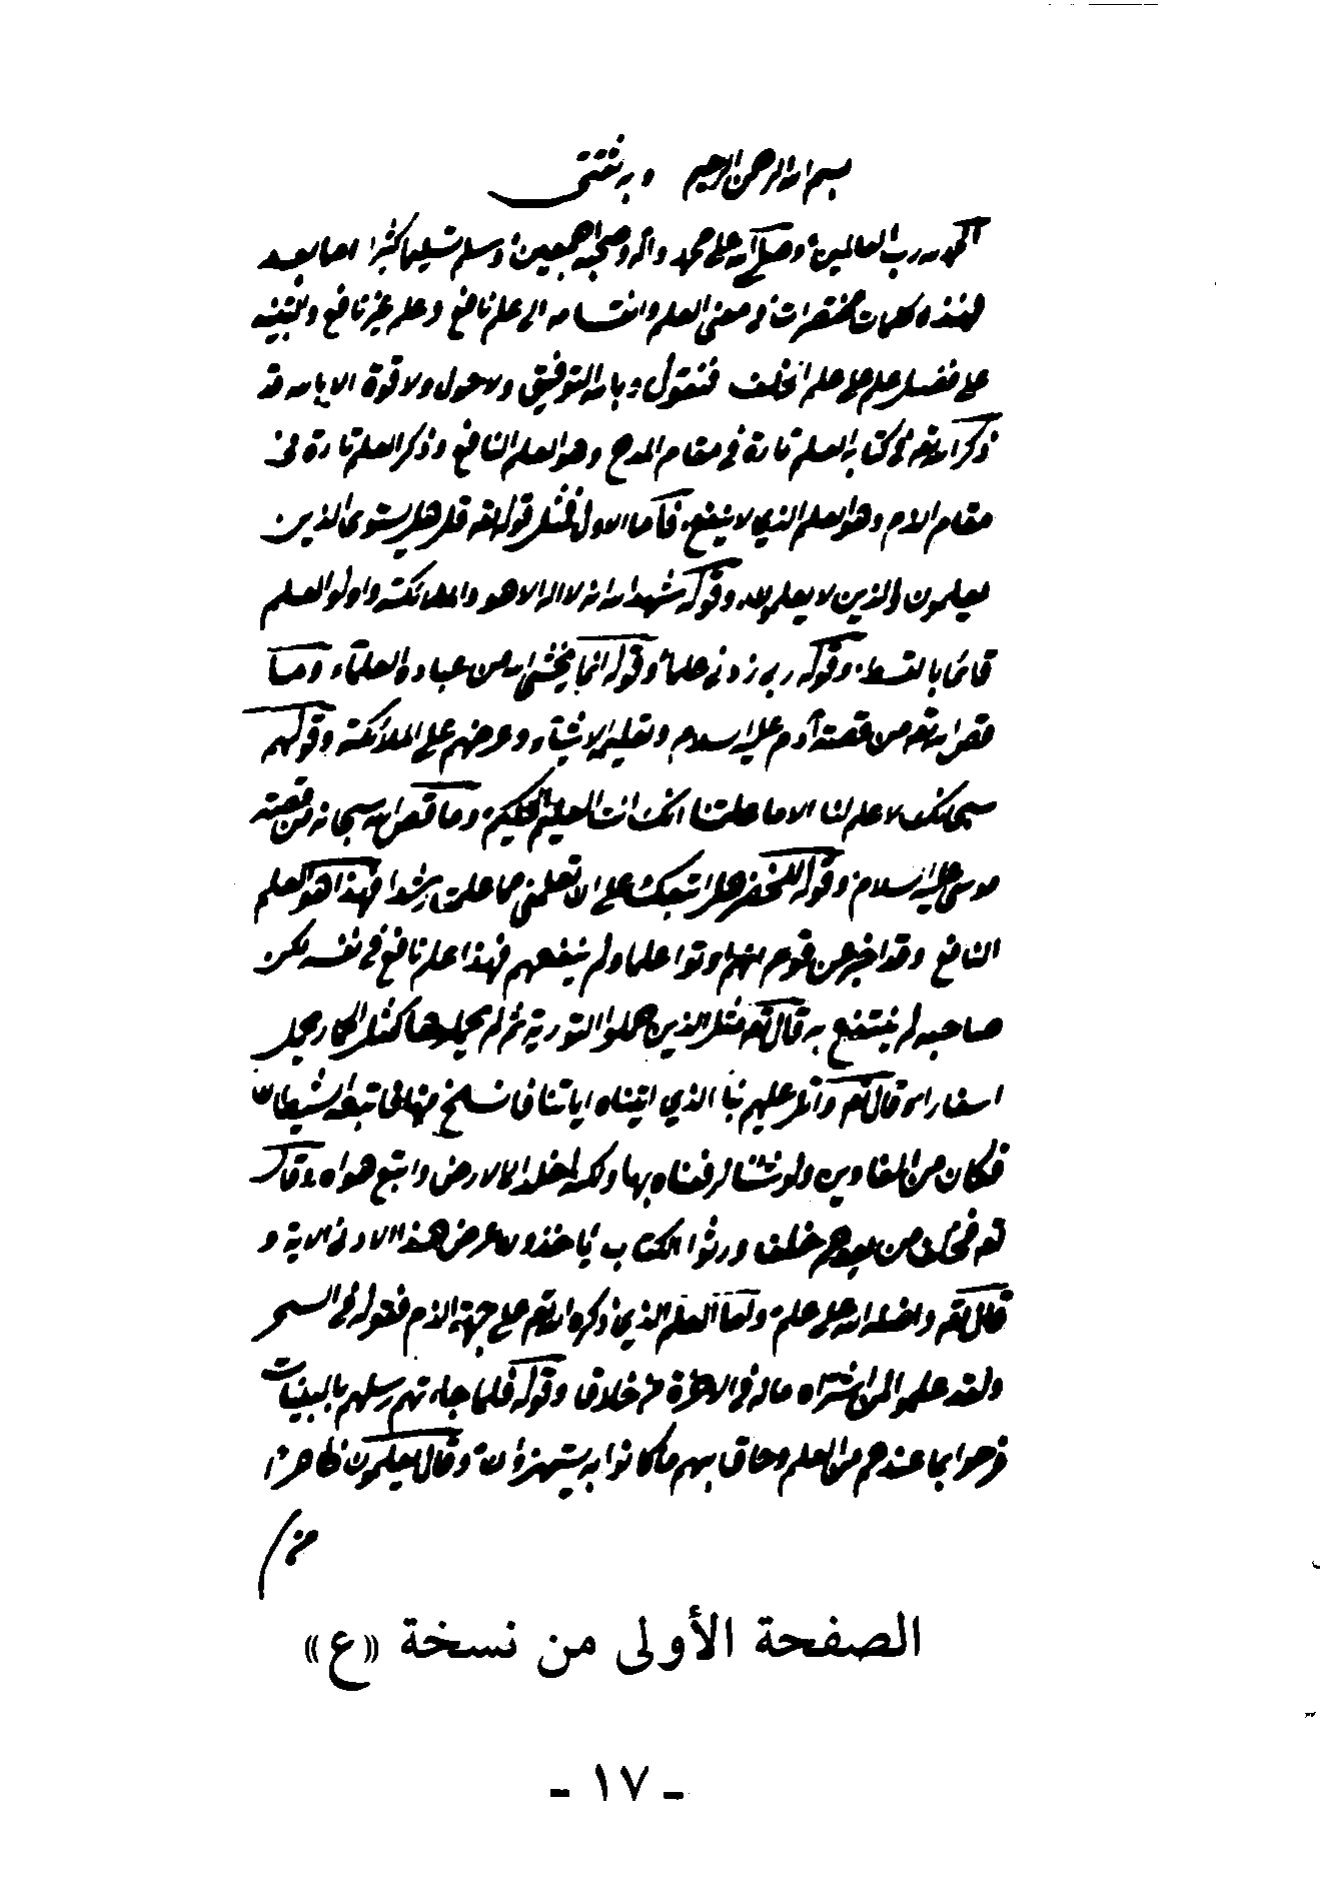 بسم الله الرحمن الرحيم وبه ثقتي
الحمد لله رب العالمين وصلى الله على محمد واله وصحبه اجمعين وسلم تسليما كثيرا اما بعد
فهذه كلمات مختصرات في معنى العلم وانقسامه الى علم نافع وعلم غير نافع والتنبيه
على فضل علم على علم الخلف فنقول وبالله التوفيق ولا حول ولا قوة الا بالله قد
ذكر الله تعه في كتابه العلم تارة في مقام المدح وهو العلم النافع وذكر العلم تارة في
مقام الذم وهو العلم الذي لا ينفع فأما الاول فمثل قوله تعه قل هل يستوى الذين
يعلمون والذين لا يعلمون وقوله شهد الله انه لا اله الا هو والملائكة واولو العلم
قائما بالقسط وقوله رب زدني علما وقوله انما يخشى الله من عباده العلماء وما
قص الله تعه من قصة آدم عليه السلام وتعليمه الاشياء وعرضهم على الملائكة وقولهم
سبحانك لا علم لنا الا ما علمتنا انك انت العليم الحكيم وما قص الله سبحانه من قصة
موسى عليه السلام وقوله للخضر هل اتبعك على ان تعلمني مما علمت رشدا فهذا هو العلم
النافع وقد اخبر عن قوم انهم اوتوا علما ولم ينفعهم فهذا علم نافع في نفسه لكن
صاحبه لم ينتفع به قال تعه مثل الذين حملوا التورية ثم لم يحملوها كمثل الحمار يحمل
اسفارا وقال تعه واتل عليهم نبأ الذي اتيناه اياتنا فانسلخ منها فاتبعه الشيطان
فكان من الغاوين ولو شئنا لرفعناه بها ولكنه اخلد الى الارض واتبع هواه وقال
تعه فخلف من بعدهم خلف ورثوا الكتاب ياخذون عرض هذا الادنى الاية و
قال تعه واضله الله على علم واما العلم الذي ذكره الله تعه على جهة الذم فقوله في السحر
ولقد علموا لمن اشتراه ماله في الاخرة من خلاق وقوله فلما جاءتهم رسلهم بالبينات
فرحوا بما عندهم من العلم وحاق بهم ما كانوا به يستهزؤن وقال يعلمون ظاهرا
من
الصفحة الأولى من نسخة «ع»
- ١٧ -